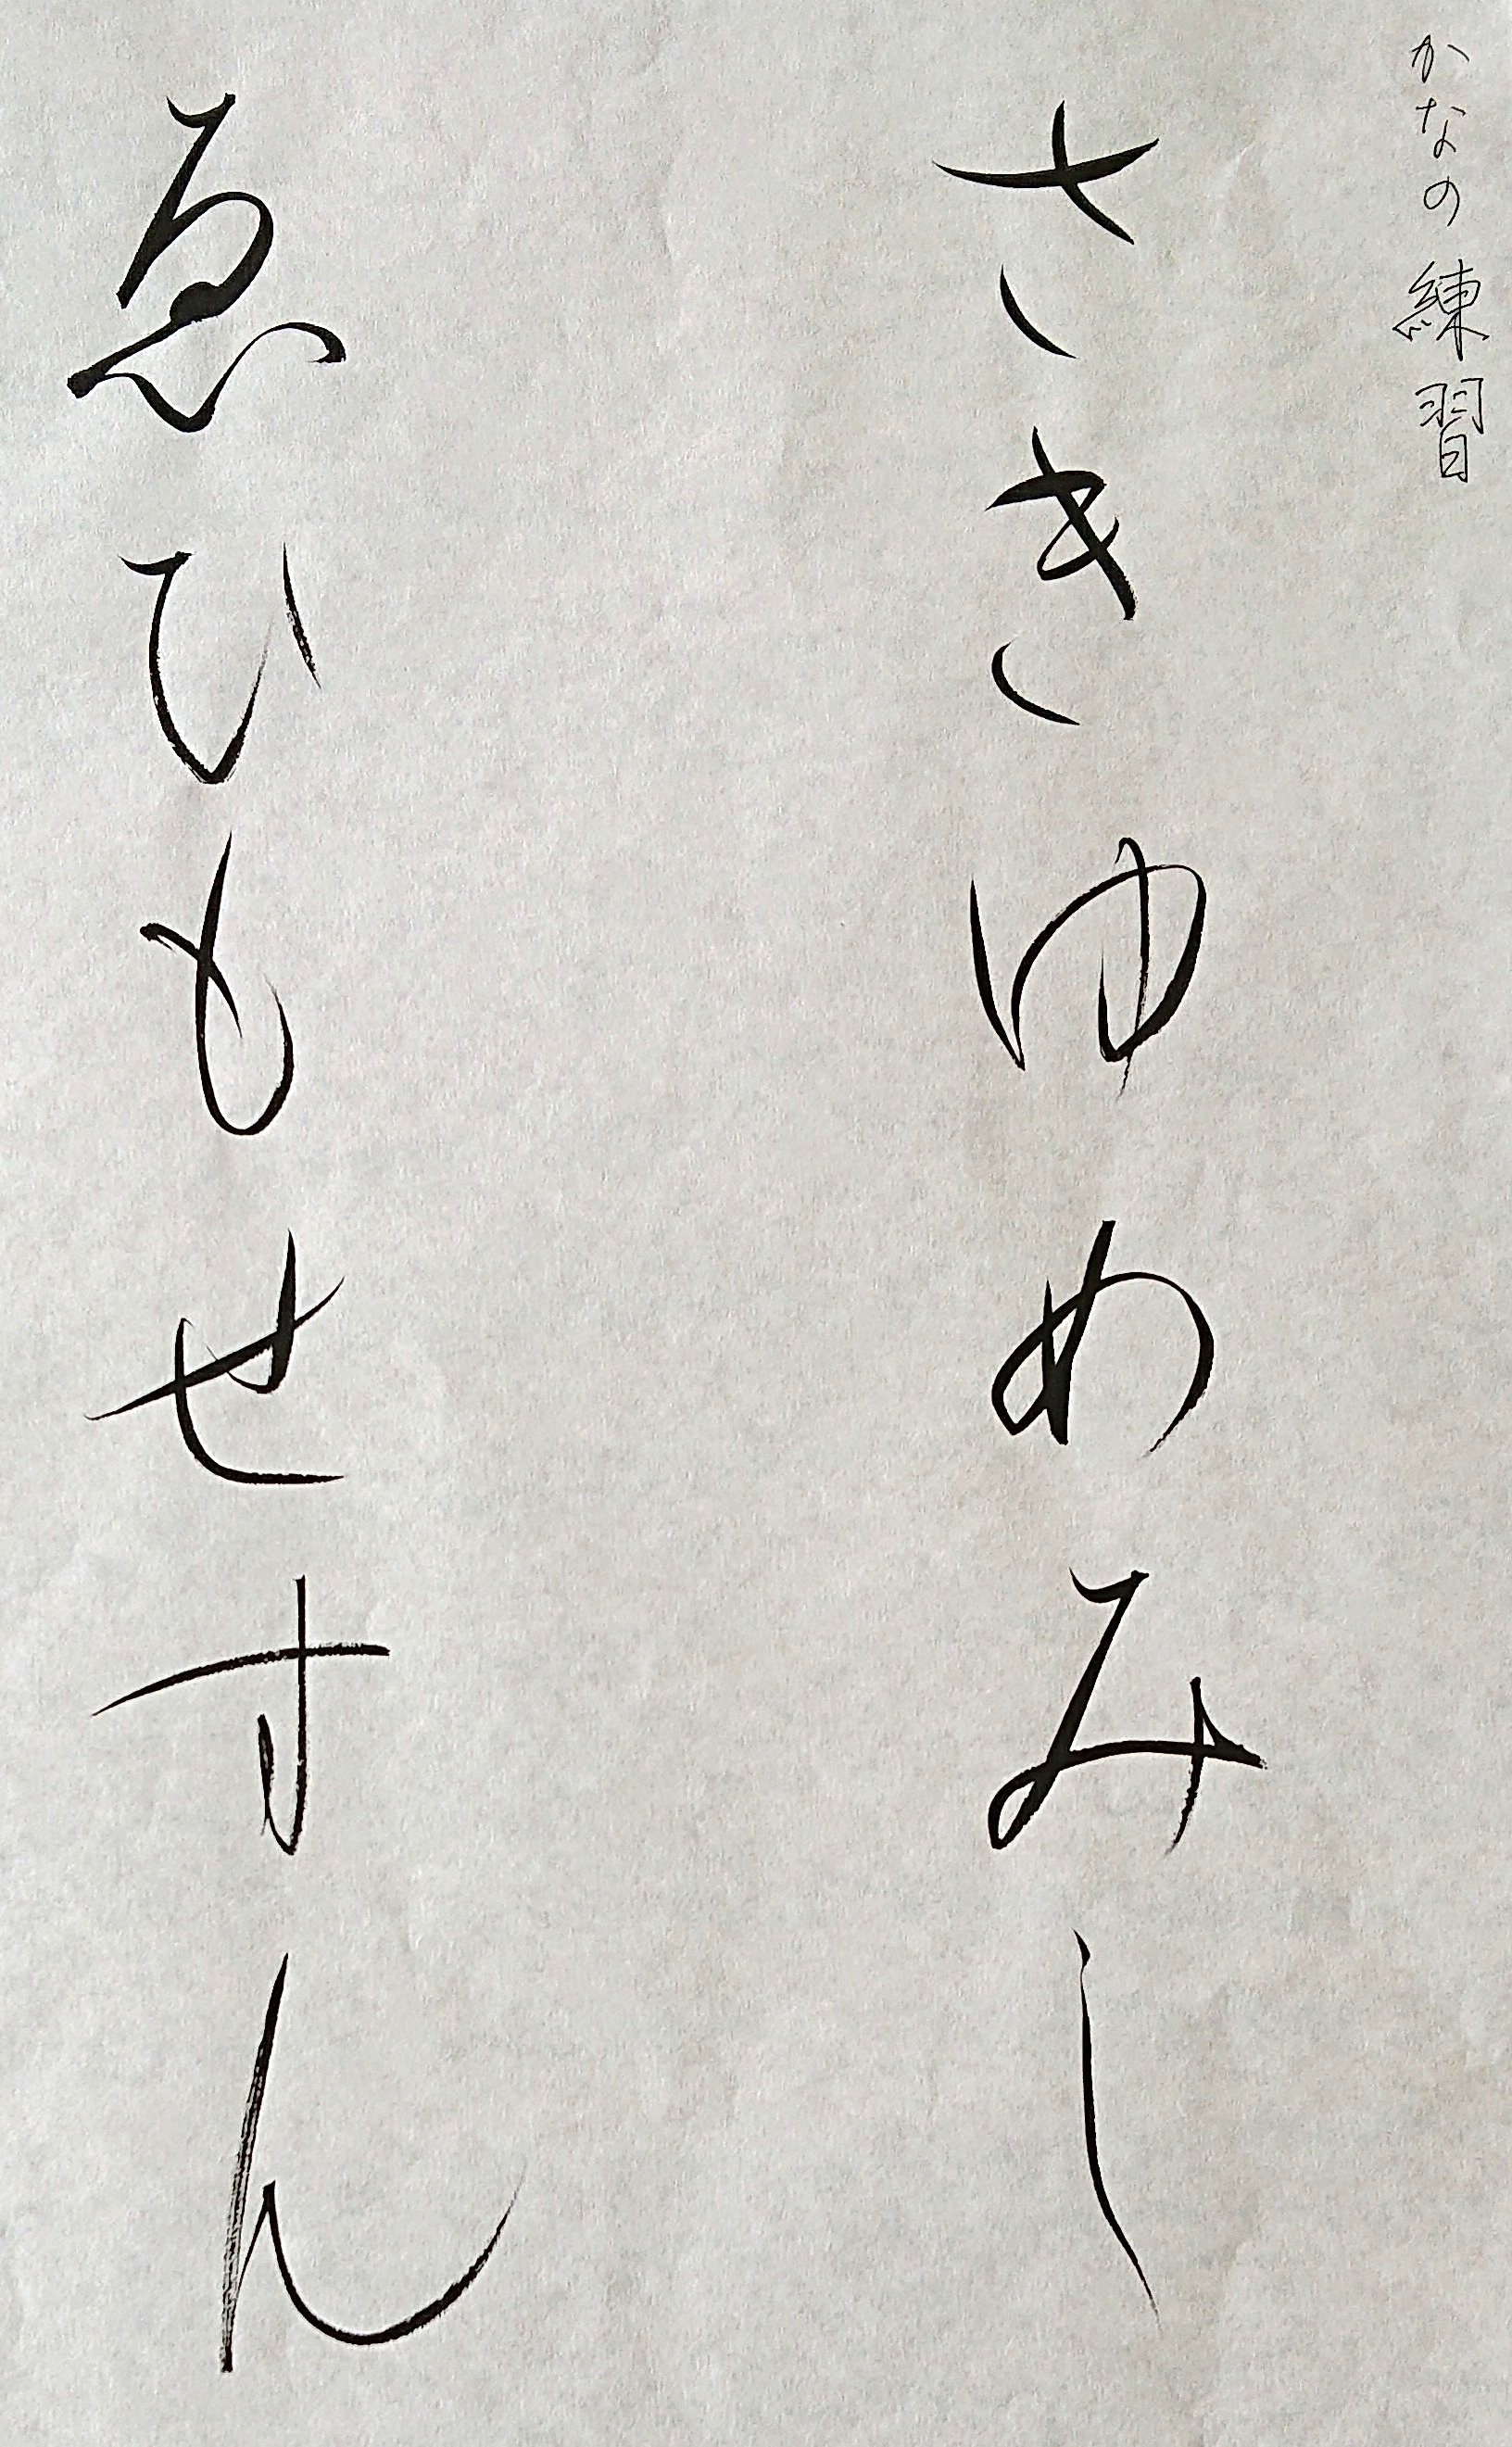 かなの練習
さきゆめみし
ゑひもせすん